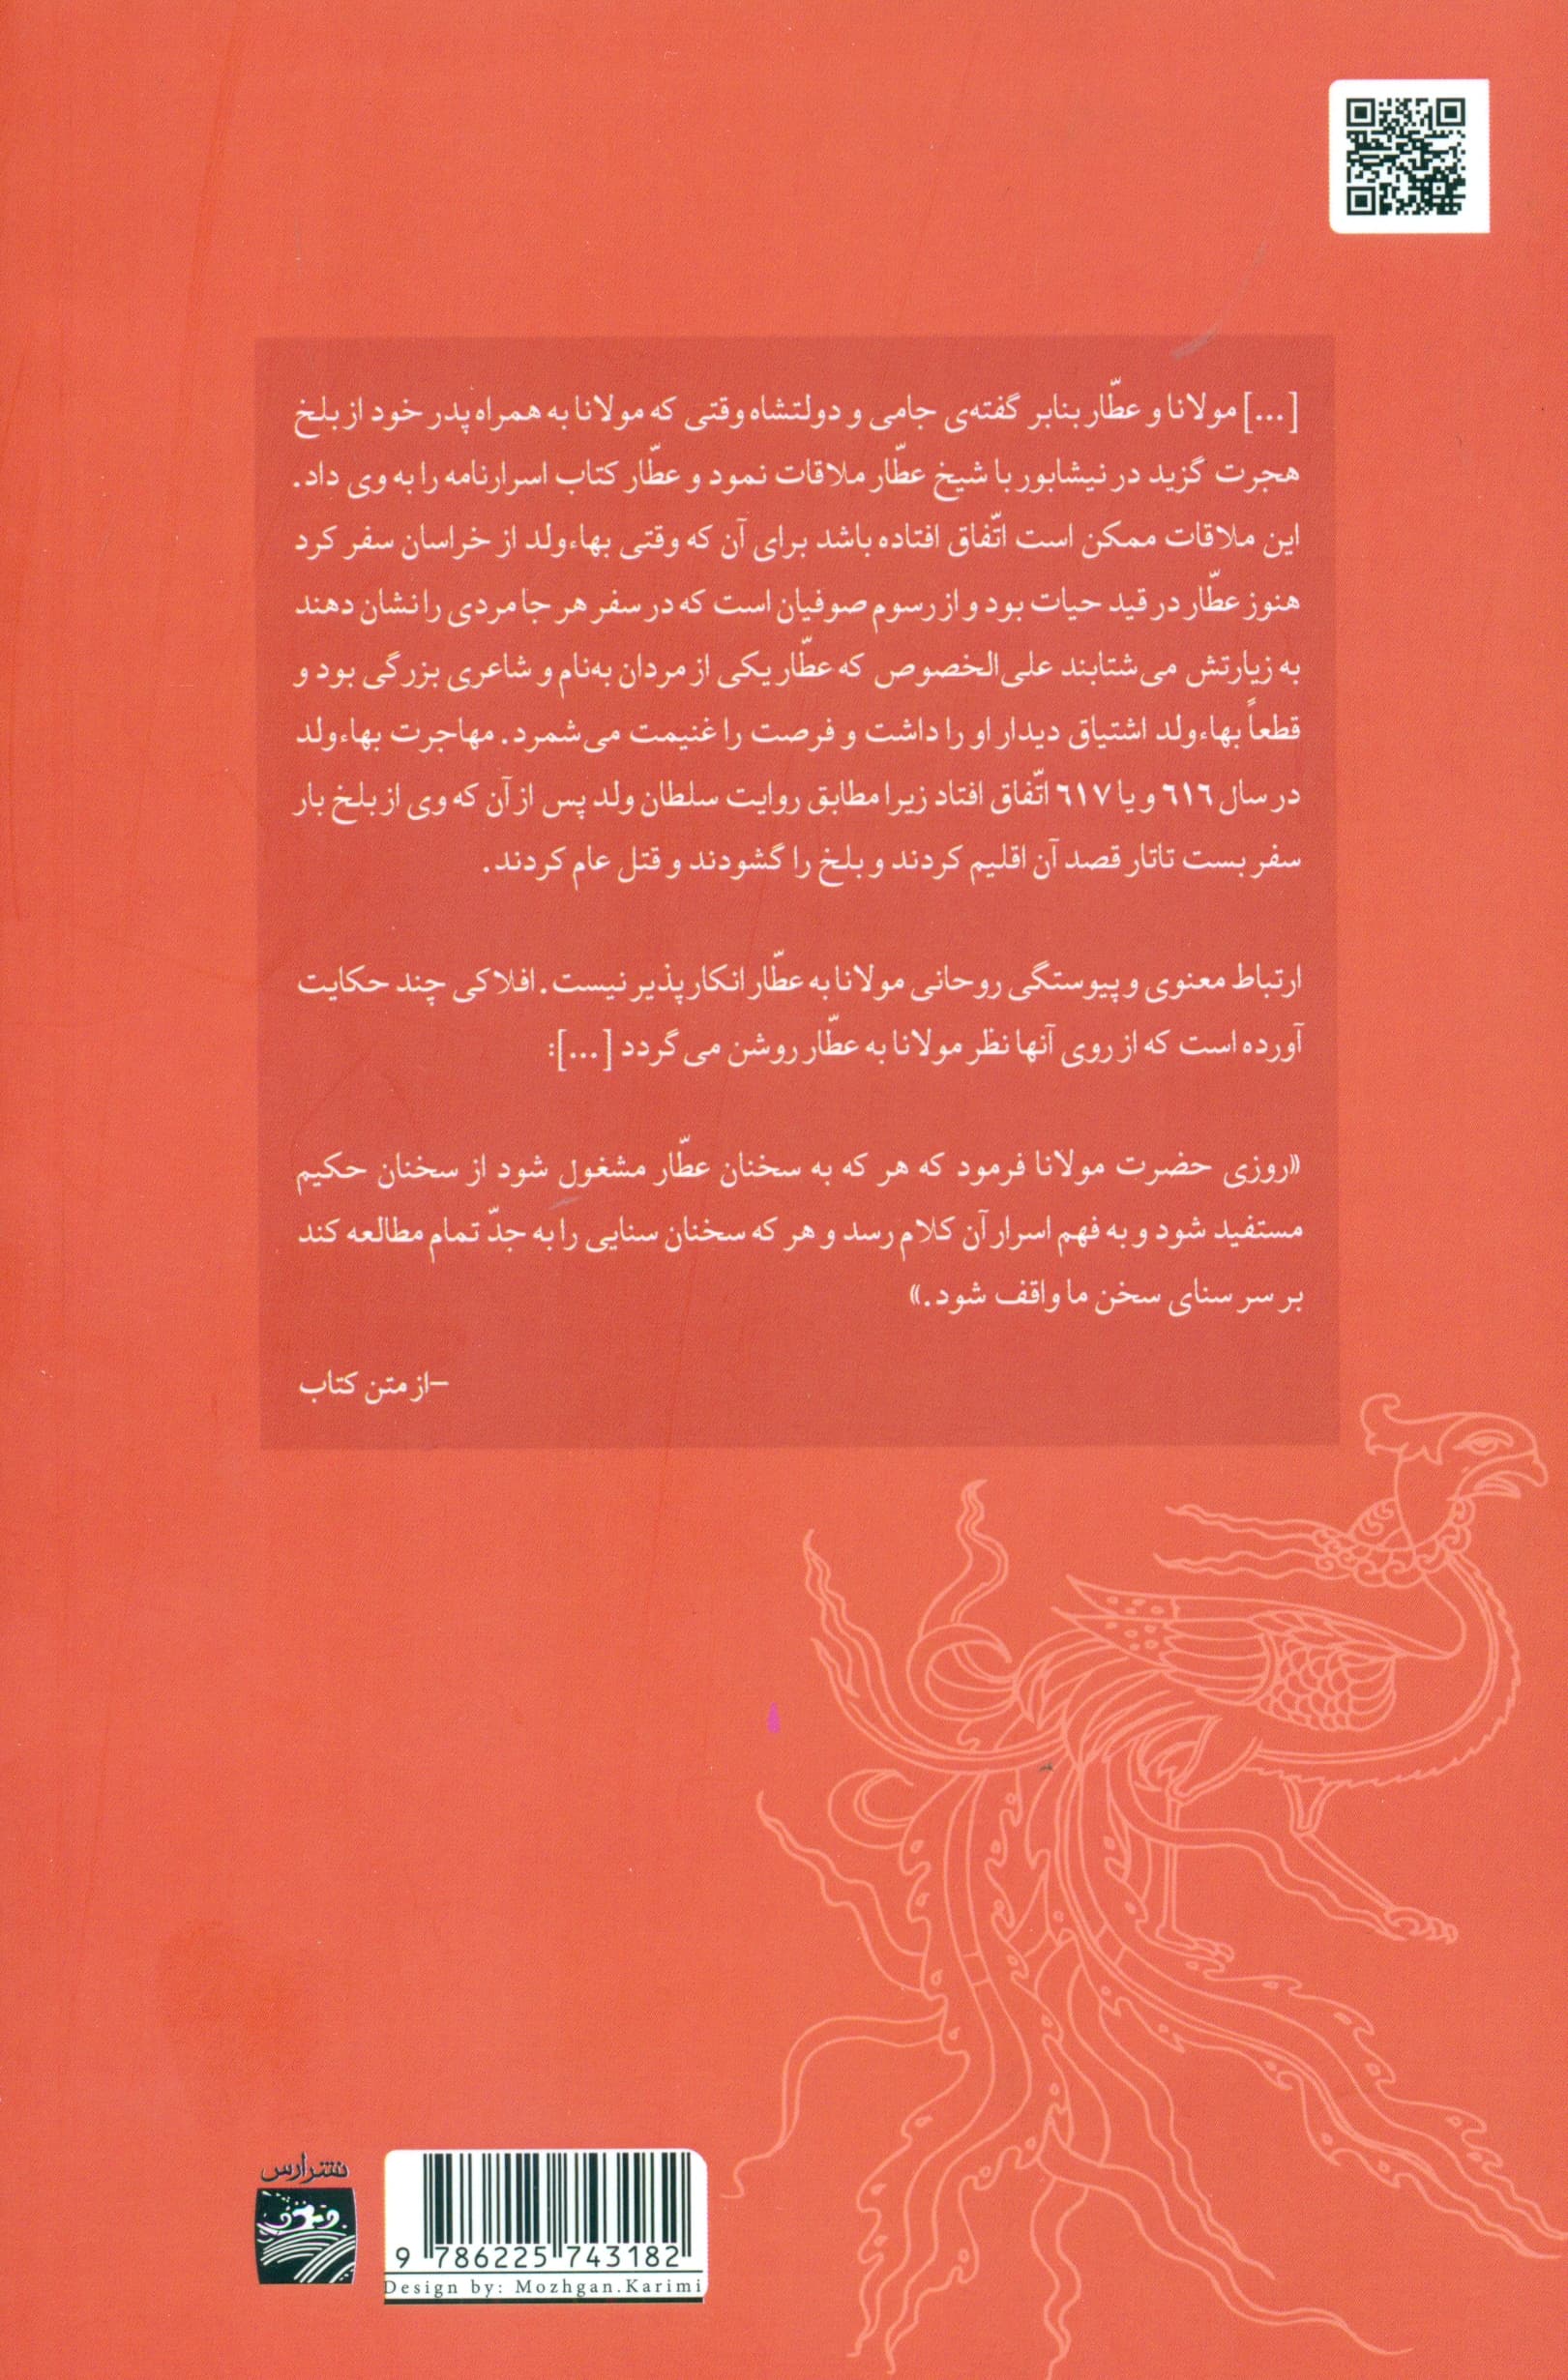 [...] مولانا و عطّار بنابر گفته‌ی جامی و دولتشاه وقتی که مولانا به همراه پدر خود از بلخ
هجرت گزید در نیشابور با شیخ عطّار ملاقات نمود و عطّار کتاب اسرارنامه را به وی داد.
این ملاقات ممکن است اتّفاق افتاده باشد برای آن که وقتی بهاءولد از خراسان سفر کرد
هنوز عطّار در قید حیات بود و از رسوم صوفیان است که در سفر هر جا مردی را نشان دهند
به زیارتش می‌شتابند علی‌الخصوص که عطّار یکی از مردان به‌نام و شاعری بزرگی بود و
قطعاً بهاءولد اشتیاق دیدار او را داشت و فرصت را غنیمت می‌شمرد. مهاجرت بهاءولد
در سال ٦١٦ و یا ٦١٧ اتّفاق افتاد زیرا مطابق روایت سلطان ولد پس از آن که وی از بلخ بار
سفر بست تاتار قصد آن اقلیم کردند و بلخ را گشودند و قتل عام کردند.
ارتباط معنوی و پیوستگی روحانی مولانا به عطّار انکارپذیر نیست. افلاکی چند حکایت
آورده است که از روی آنها نظر مولانا به عطّار روشن می‌گردد [...]:
«روزی حضرت مولانا فرمود که هر که به سخنان عطّار مشغول شود از سخنان حکیم
مستفید شود و به فهم اسرار آن کلام رسد و هر که سخنان سنایی را به جدّ تمام مطالعه کند
بر سر سنای سخن ما واقف شود.»
–از متن کتاب
نشر ارس
9 786225 743182
Design by: Mozhgan.Karimi